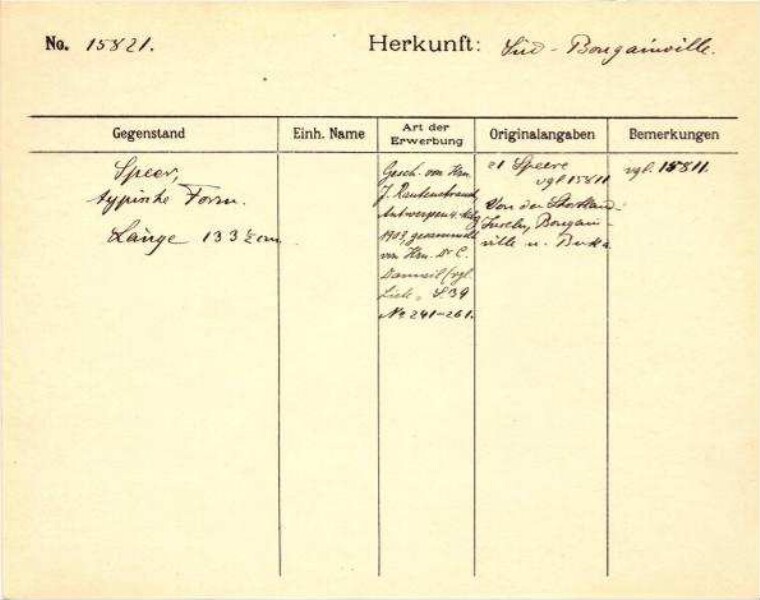 No. 15821.
Herkunft: Süd - Bougainville.
Gegenstand
Einh. Name
Art der
Erwerbung
Originalangaben
Bemerkungen
Speer,
typische Form.
Länge 133 ½ cm
Gesch. von Hrn.
J. Rautenstrauch,
Antwerpen
1903, gesammelt
von Hrn. Dr C.
(vgl.
Liste, S. 39
Nr. 241-261.
21 Speere
vgl. 15811
Von den Shortland-
Inseln, Bougain-
ville u. Buka
vgl. 15811.